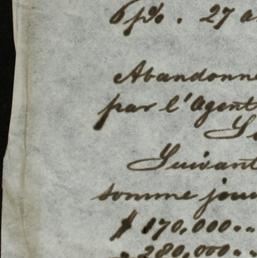 6 p%. 27 a
Abandonne
par l'Agent
Suivant
somme jou
$ 170,000
" 280,000